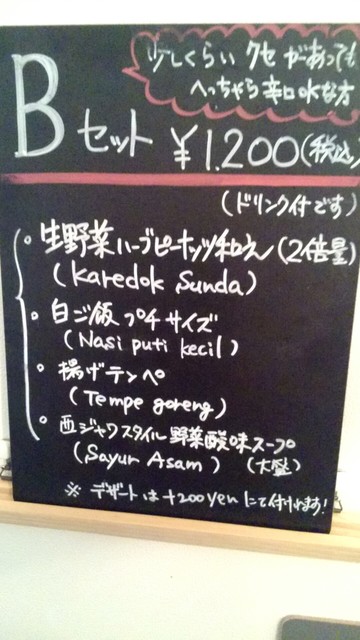 少しくらい クセ があっても
へっちゃら辛口OKな方
Bセット ¥1.200(税込)
(ドリンク付です)
。生野菜ハーブピーナッツ和え(2倍量)
(Karedok Sunda)
。白ご飯 プチサイズ
(Nasi puti kecil)
。揚げテンペ
(Tempe goreng)
。西ジャワスタイル野菜酸味スープ
(Sayur Asam) (大盛)
※ デザートは+200yenにて付けれます!